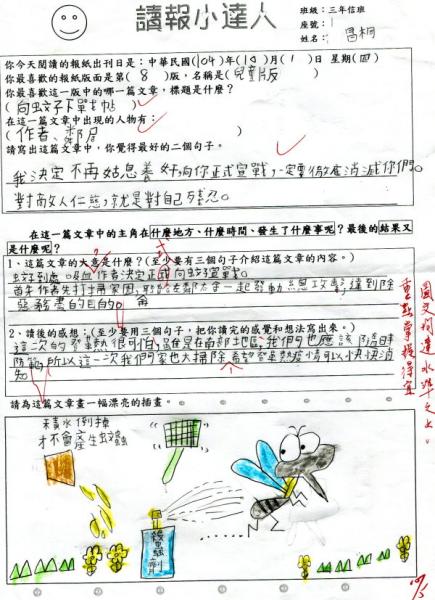 讀報小達人
班級：三年信班
座號：1
姓名：冒桐
你今天閱讀的報紙出刊日是：中華民國(104)年(10)月(1)日 星期(四)
你最喜歡的報紙版面是第(8)版，名稱是(兒童版)
你最喜歡這一版中的哪一篇文章，標題是什麼？
(向蚊子下單挑帖)
在這一篇文章中出現的人物有：
(作者、鄰居)
請寫出這篇文章中，你覺得最好的二個句子。
我決定不再姑息養奸，向你正式宣戰，一定要徹底消滅你們。
對敵人仁慈，就是對自己殘忍。
在這一篇文章中的主角在什麼地方、什麼時間、發生了什麼事呢？最後的結果又
是什麼呢？
1、這篇文章的大意是什麼？(至少要有三個句子介紹這篇文章的內容。)
蚊子到處吸血，作者決定正式向蚊子宣戰。
首先作者先打掃家園，鄰居一起發動總攻擊，達到除
惡務盡的目的。
2、讀後的感想：(至少要用三個句子，把你讀完的感覺和想法寫出來。)
這次的登革熱很可怕，雖是在南部地區，我們也應該隨時
防範，所以這一次我們家也大掃除，希望登革熱疫情可以快快消
失。
請為這篇文章畫一幅漂亮的插畫。
積水倒掉
才不會產生蚊蟲
殺蟲劑
圖文相達水準之上。
重點掌握得宜
10/5